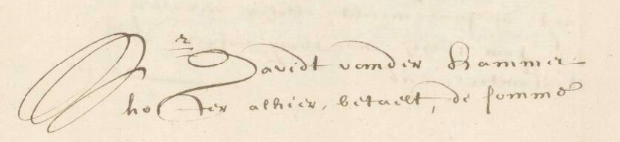 Sr Davidt vander Hammer
ho ter alhier, betaelt, de somme